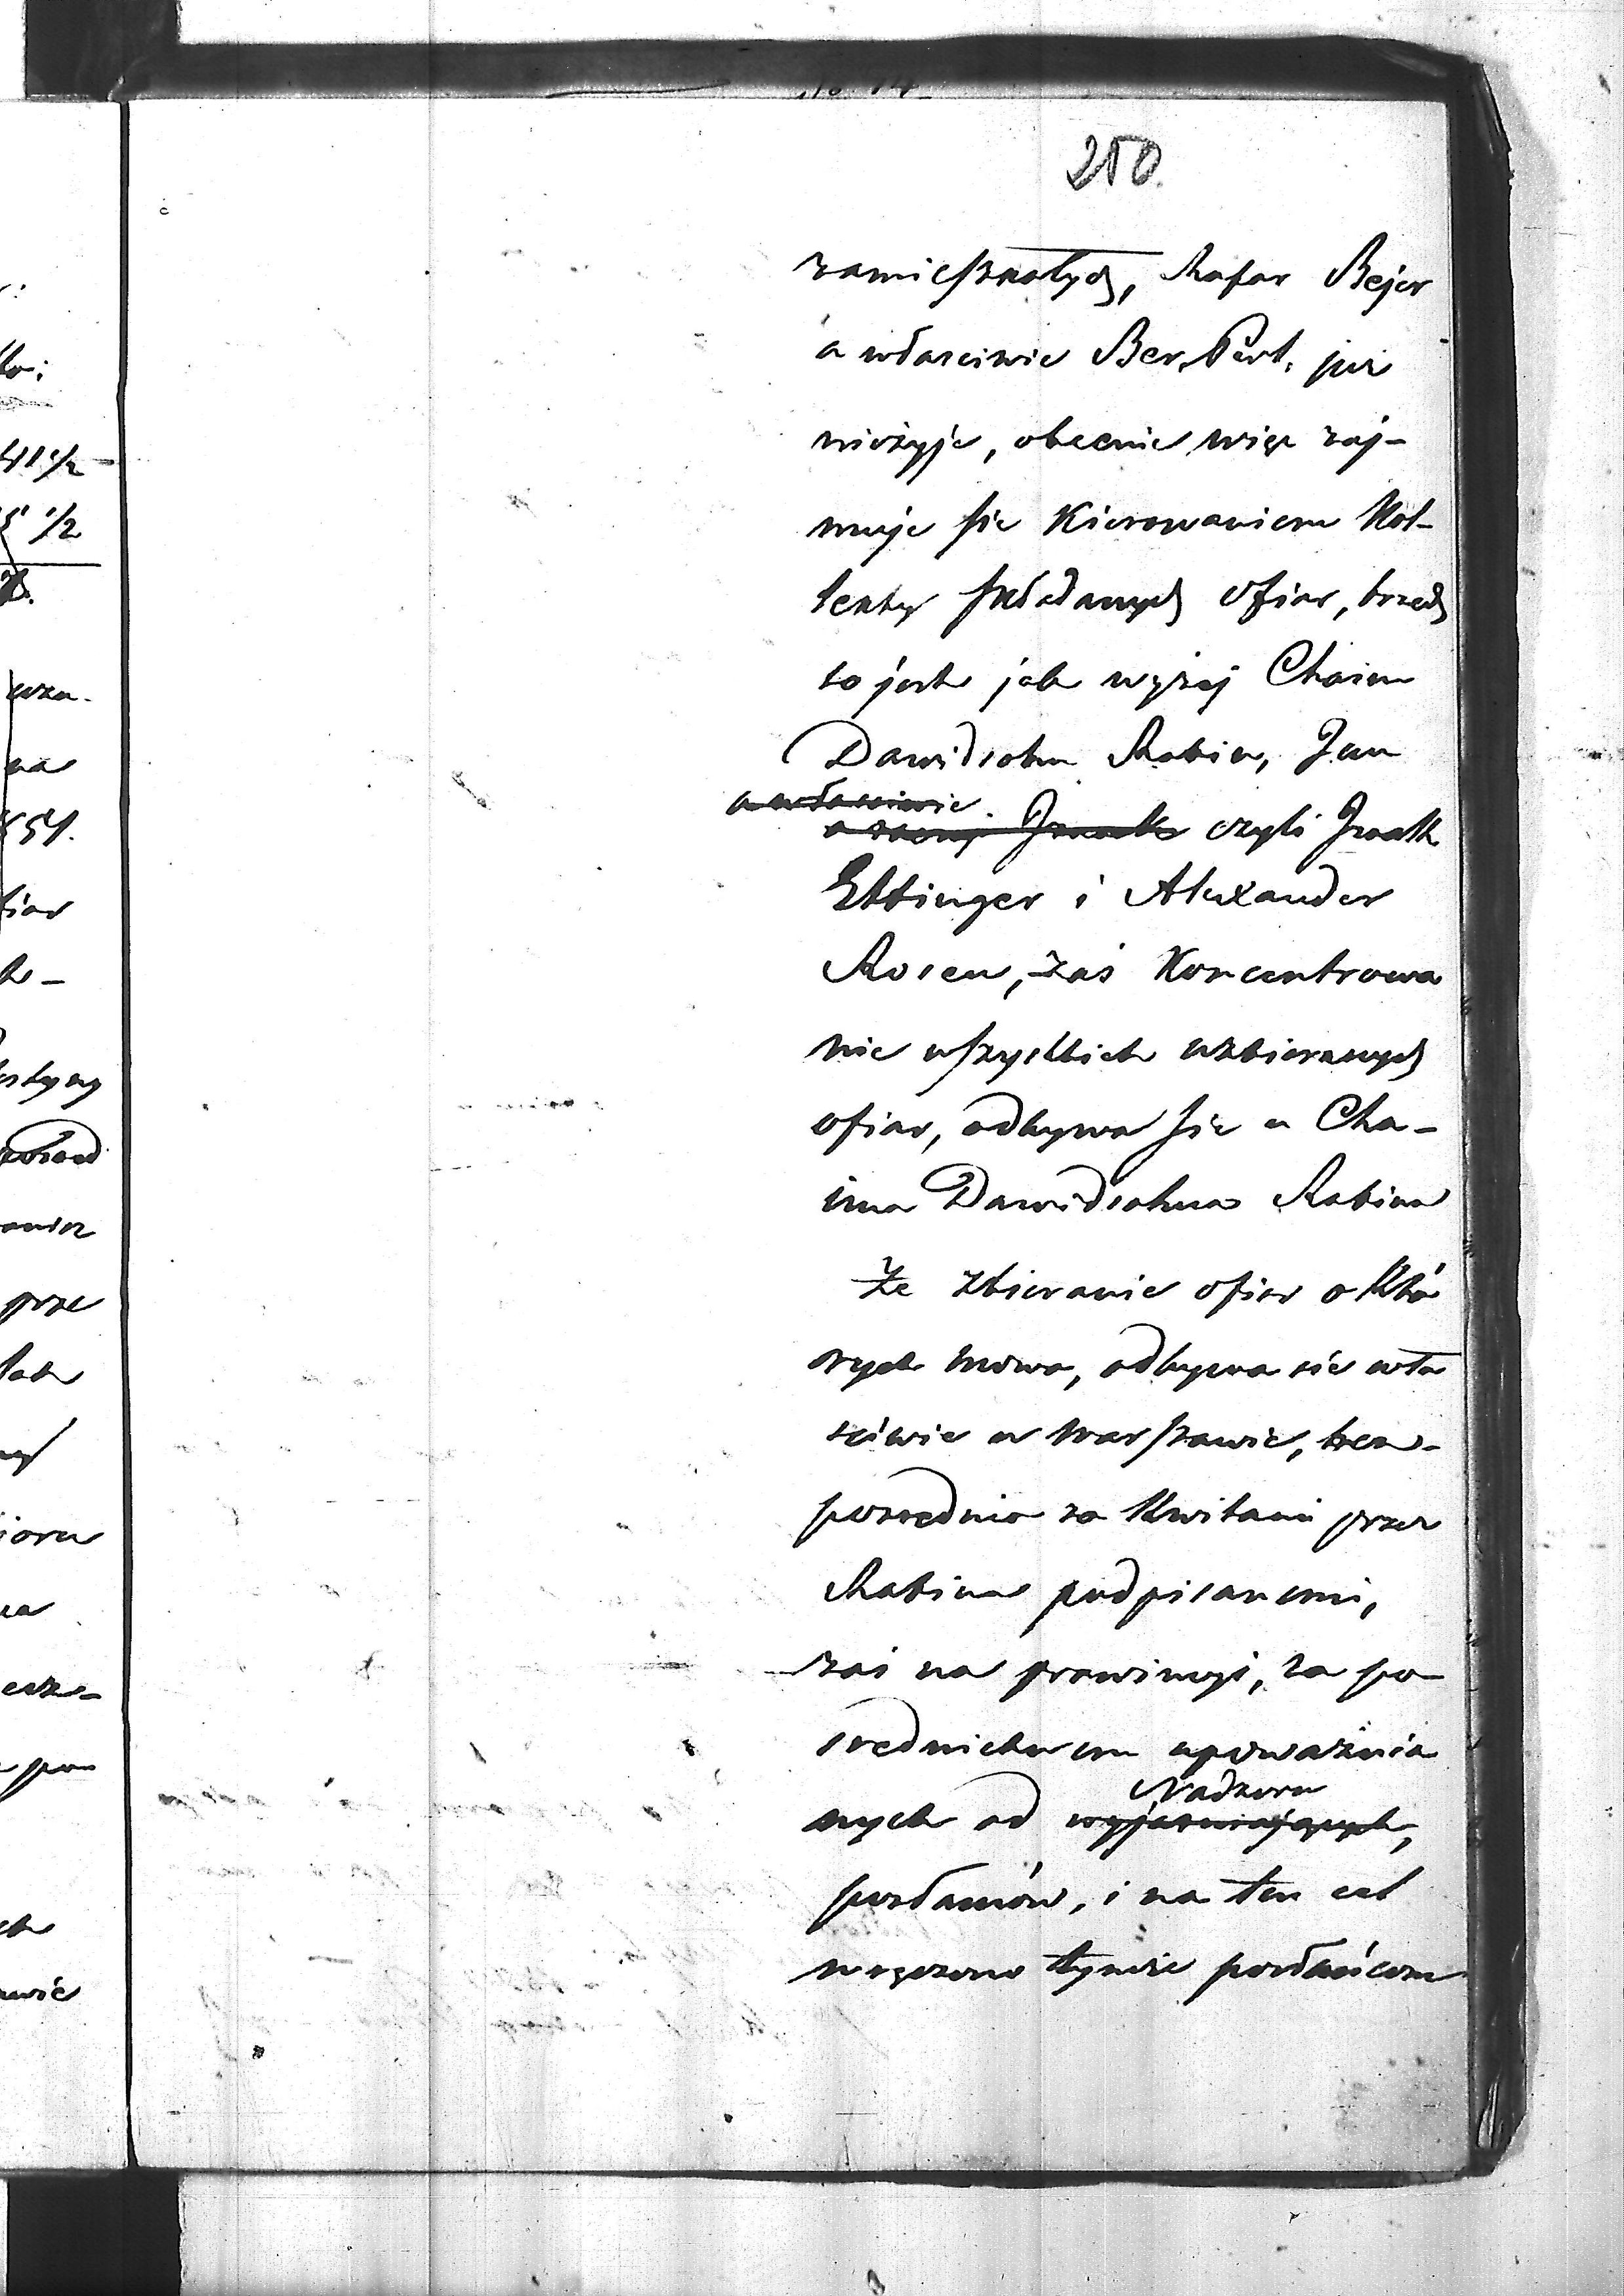 250.
zamieszkałych, Rafar Bejer
a właściwie Ber Perl, już
nieżyje, obecnie więc zaj-
muje się Kierowaniem Kol-
lekty składanych ofiar, trzech
to jest jak wyżej Chaim
Dawidsohn Rabin, Jan
a właściwie
czyli Izaak
Ettinger i Alexander
Rosen, zaś Koncentrowa
nie wszystkich uzbieranych
ofiar, odbywa się u Cha-
ima Dawidsohna Rabina
Że zbieranie ofiar o któ
rych mowa, odbywa się wła
ściwie w Warszawie, bez-
pośrednio za Kwitami przez
Rabina podpisanemi,
zaś na prowincyi, za po-
srednictwem upoważnio
Nadzoru
nych od wyjaśniających,
posłańców, i na ten cel
wręczono tymże posłańcom
41 1/2
1/2
na
54.
prze